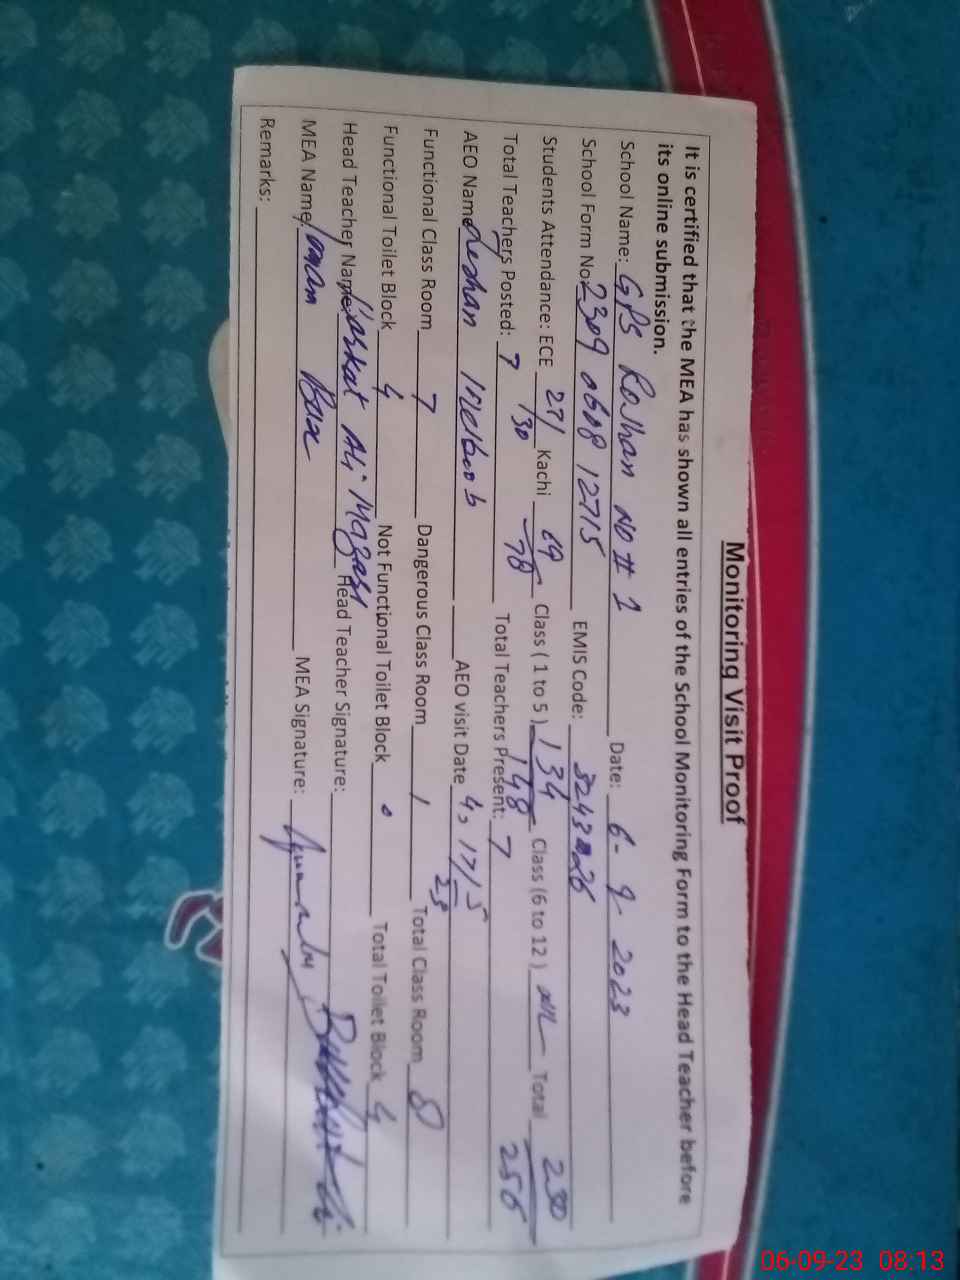 Monitoring Visit Proof
It is certified that the MEA has shown all entries of the School Monitoring Form to the Head Teacher before
its online submission.
School Name: GPS Rojhan No # 1 Date: 6-9-2023
School Form No: 2309 0608 12715 EMIS Code:
Students Attendance: ECE 27/30 Kachi 69/78 Class ( 1 to 5 ) 134/148 Class (6 to 12 ) NIL Total 230/256
Total Teachers Posted: 7 Total Teachers Present: 7
AEO Name Zeshan Meboob AEO visit Date
Functional Class Room 7 Dangerous Class Room 1 Total Class Room 8
Functional Toilet Block 4 Not Functional Toilet Block 0 Total Toilet Block 4
Head Teacher Name: Ali Head Teacher Signature:
MEA Name: Bux MEA Signature:
Remarks:
06-09-23 08:13